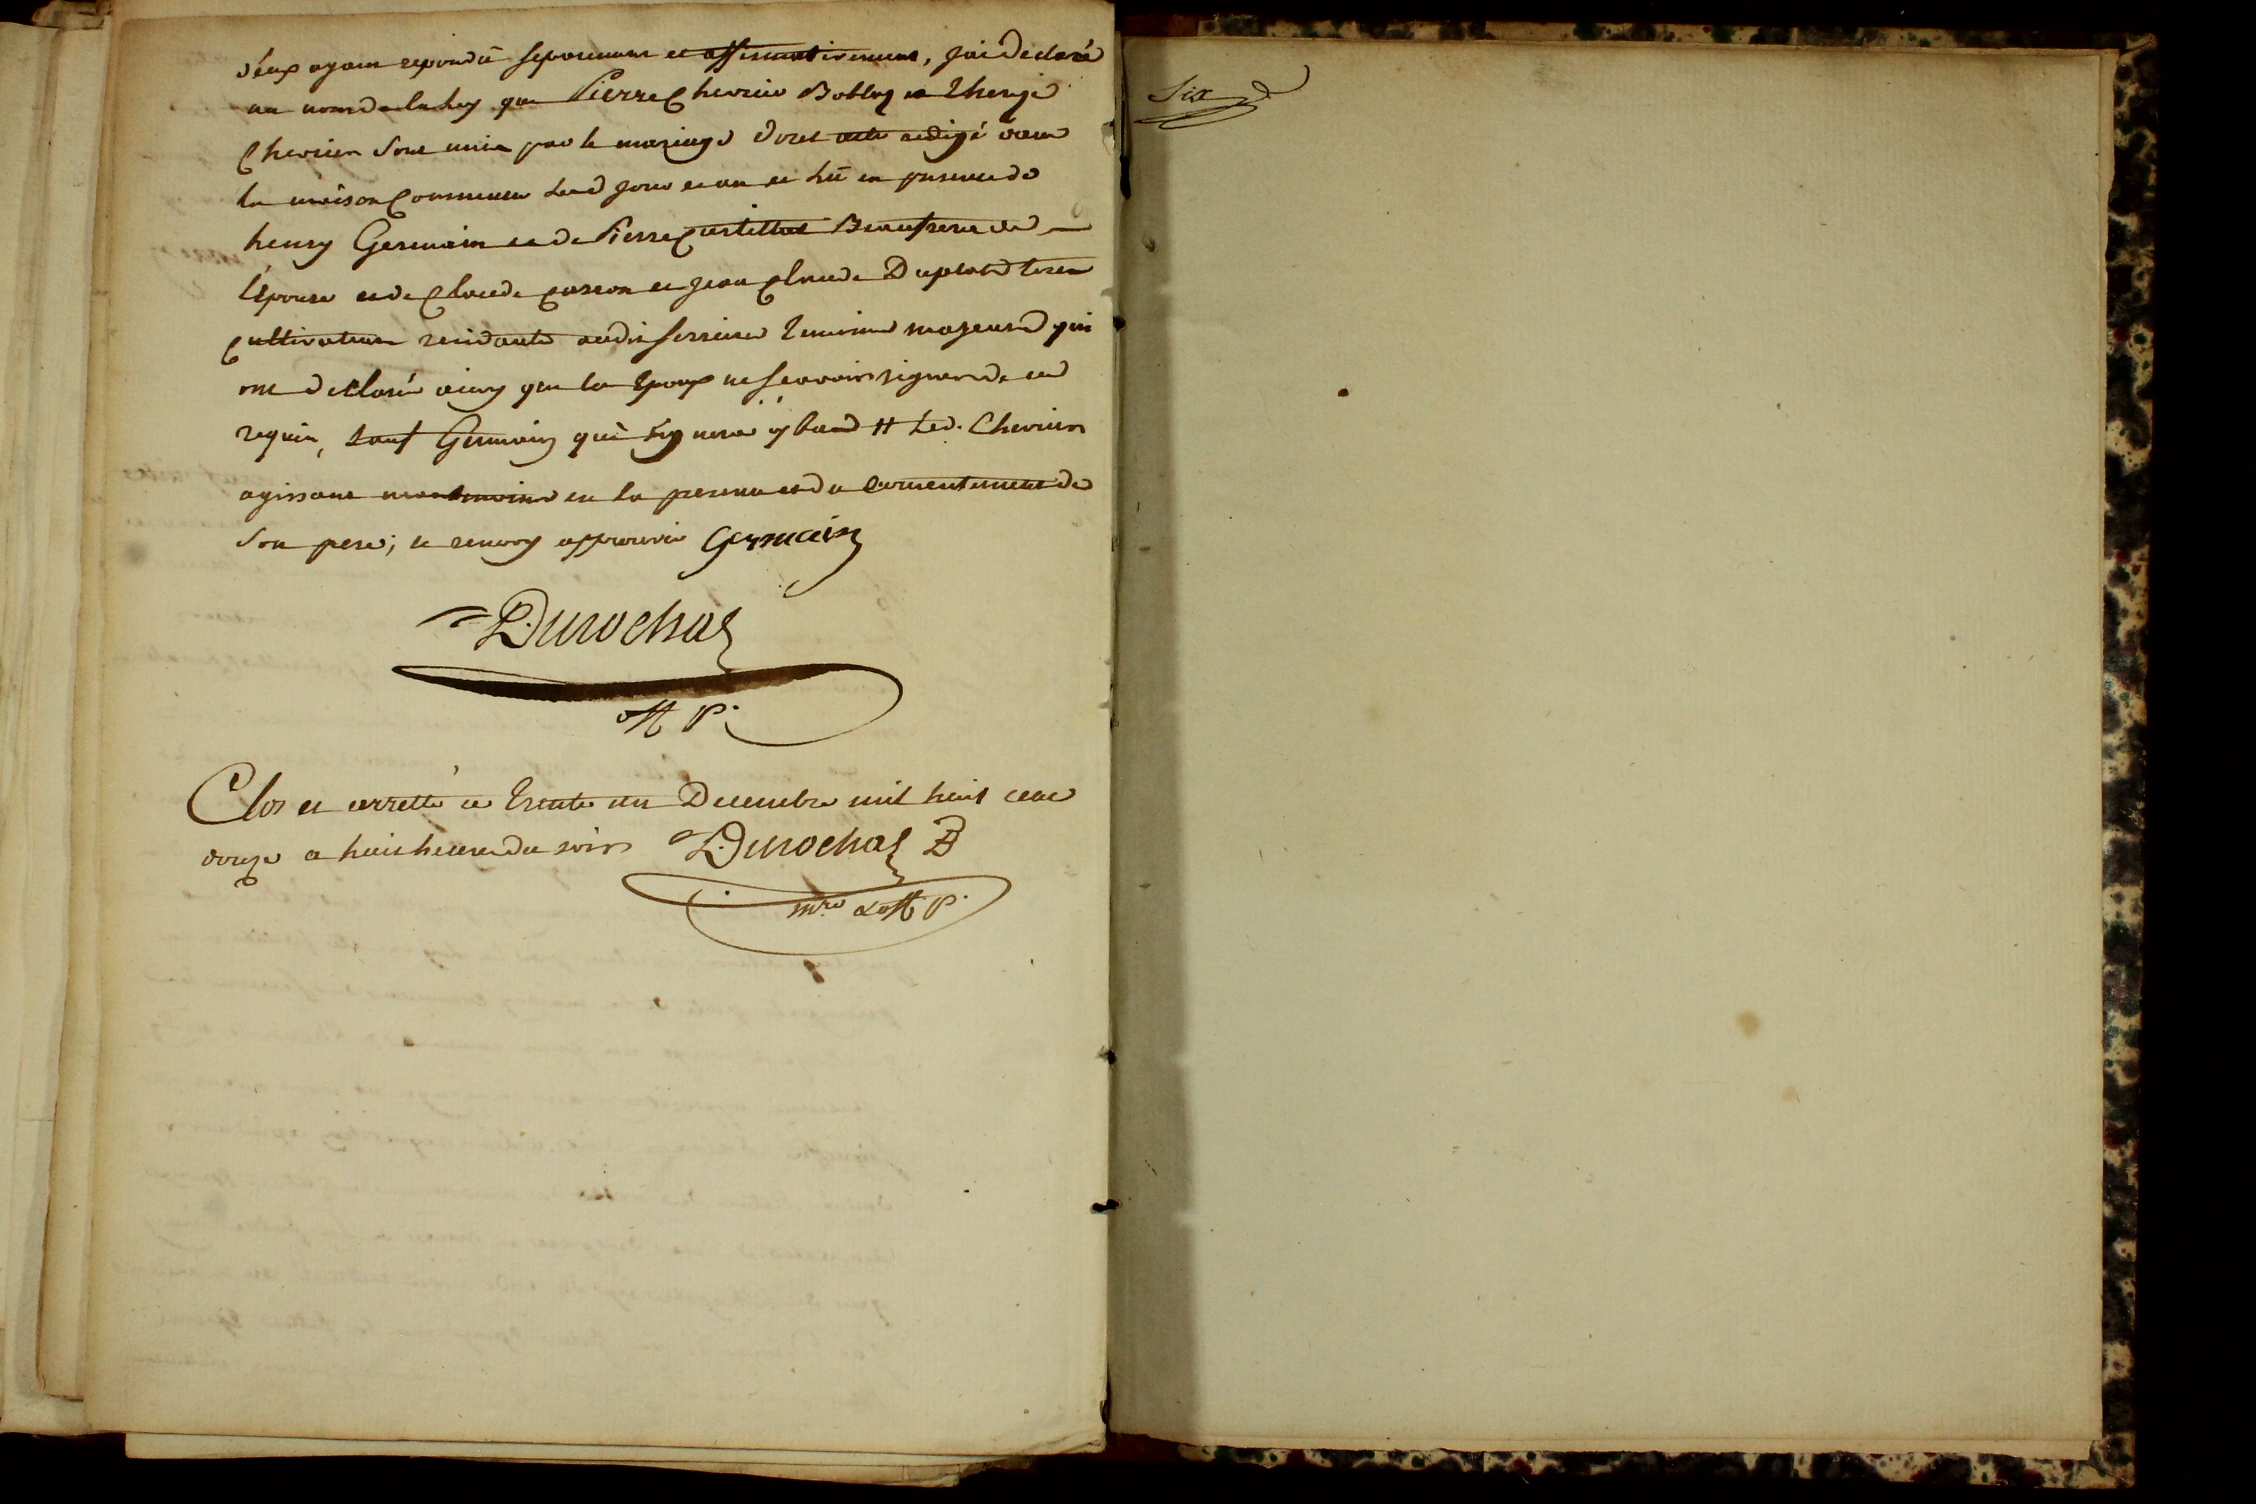 d'eux ayant repondu separement et affirmativement, jai declaré
au nom de la loy que Pierre Chevrier Bobloz et
Chevrier sont unis par le mariage dont acte redigé dans
la maison commune led jour et an et lu en presence de
henry Germain et de Pierre Beaufrere de
l'Epouse et de Claude et jean Claude Duplat
cultivateurs residants audit ferrieres temoins majeurs qui
ont declaré ainsy que les Epoux ne scavoir signer de ce
requis, sauf Germain qui signera cy bas # Led. Chevrier
agissant neantmoins en la presence et du consentement de
son pere; le renvoy approuvé Germain
Durochat
off P.
Clos et arretté ce trente un Decembre mil huit cent
douze a huit heures du soir Durochat
mre off P.
Six